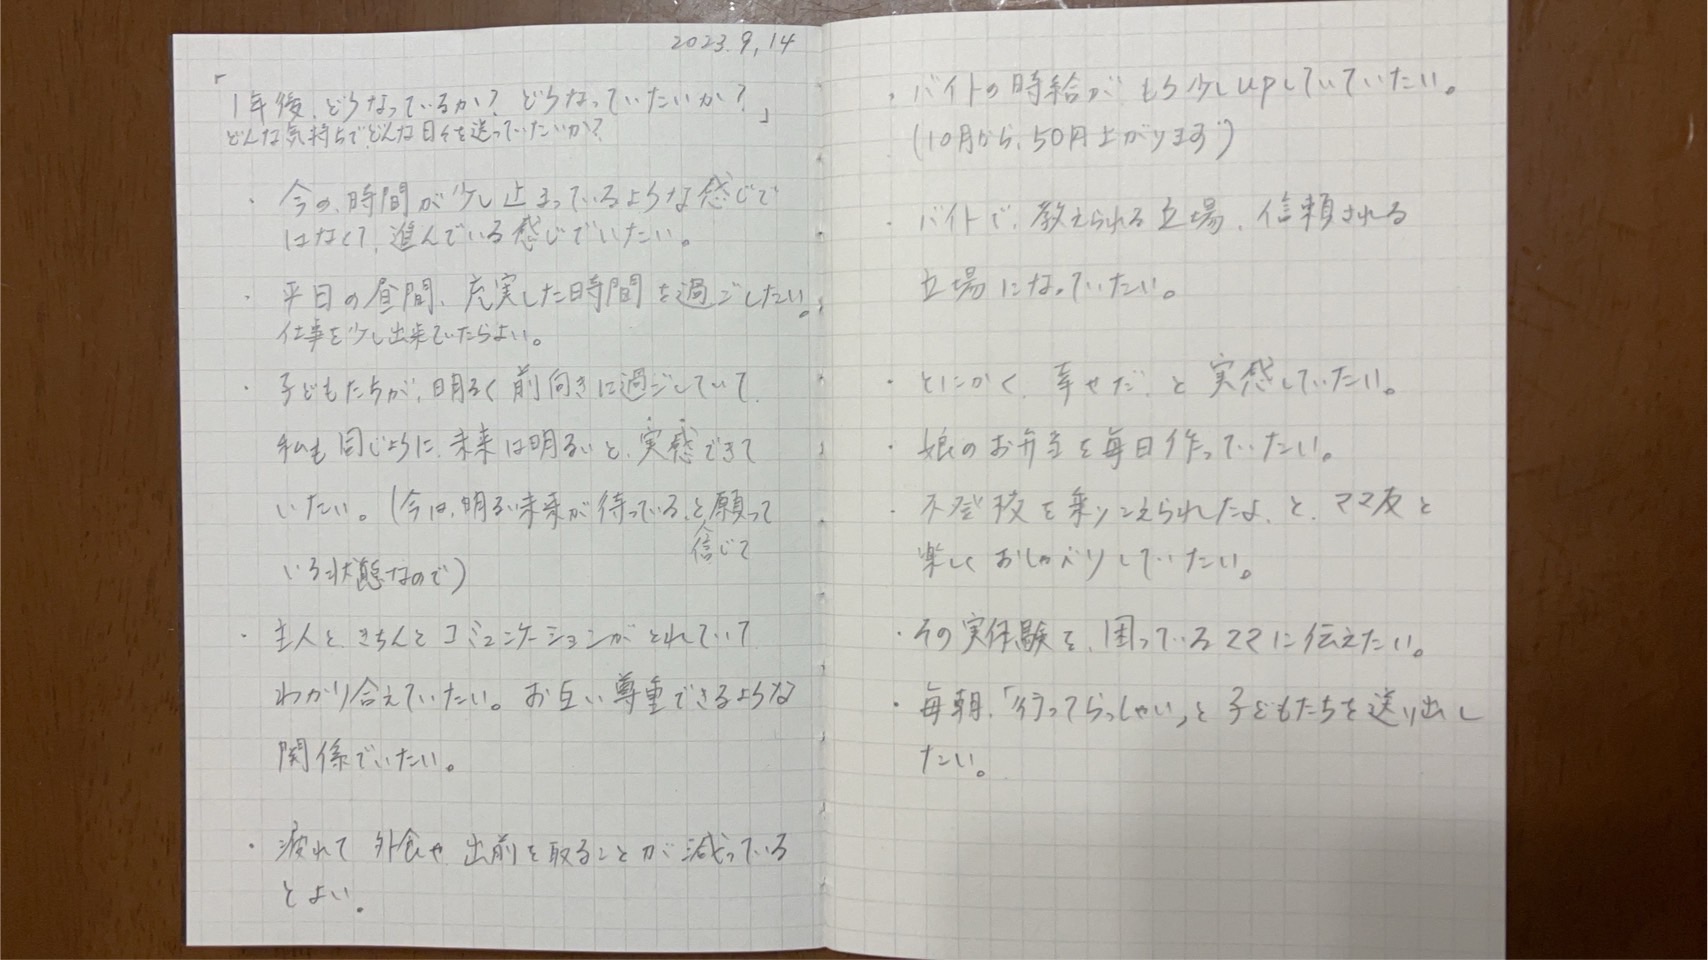 2023.9.14
「1年後、どうなっているか? どうなっていたいか?
どんな気持ちでどんな日々を送っていたいか?」
・今の、時間が少し止まっているような感じで
はなくて、進んでいる感じでいたい。
・平日の昼間、充実した時間を過ごしたい。
仕事を少し出来ていたらよい。
・子どもたちが、明るく前向きに過ごしていて、
私も同じように、未来は明るいと、実感できて
いたい。(今は、明るい未来が待っている、と願って
信じて
いる状態なので)
・主人と、きちんとコミュニケーションがとれていて
わかり合えていたい。お互い尊重できるような
関係でいたい。
・疲れて外食や出前を取ることが減っている
とよい。
・バイトの時給がもう少しupしていていたい。
(10月から、50円上がります)
・バイトで、教えられる立場、信頼される
立場になっていたい。
・とにかく、幸せだ、と実感していたい。
・娘のお弁当を毎日作っていたい。
・不登校を乗りこえられたよ、と、ママ友と
楽しくおしゃべりしていたい。
・その実体験を、困っているママに伝えたい。
・毎朝、「行ってらっしゃい」と子どもたちを送り出し
たい。